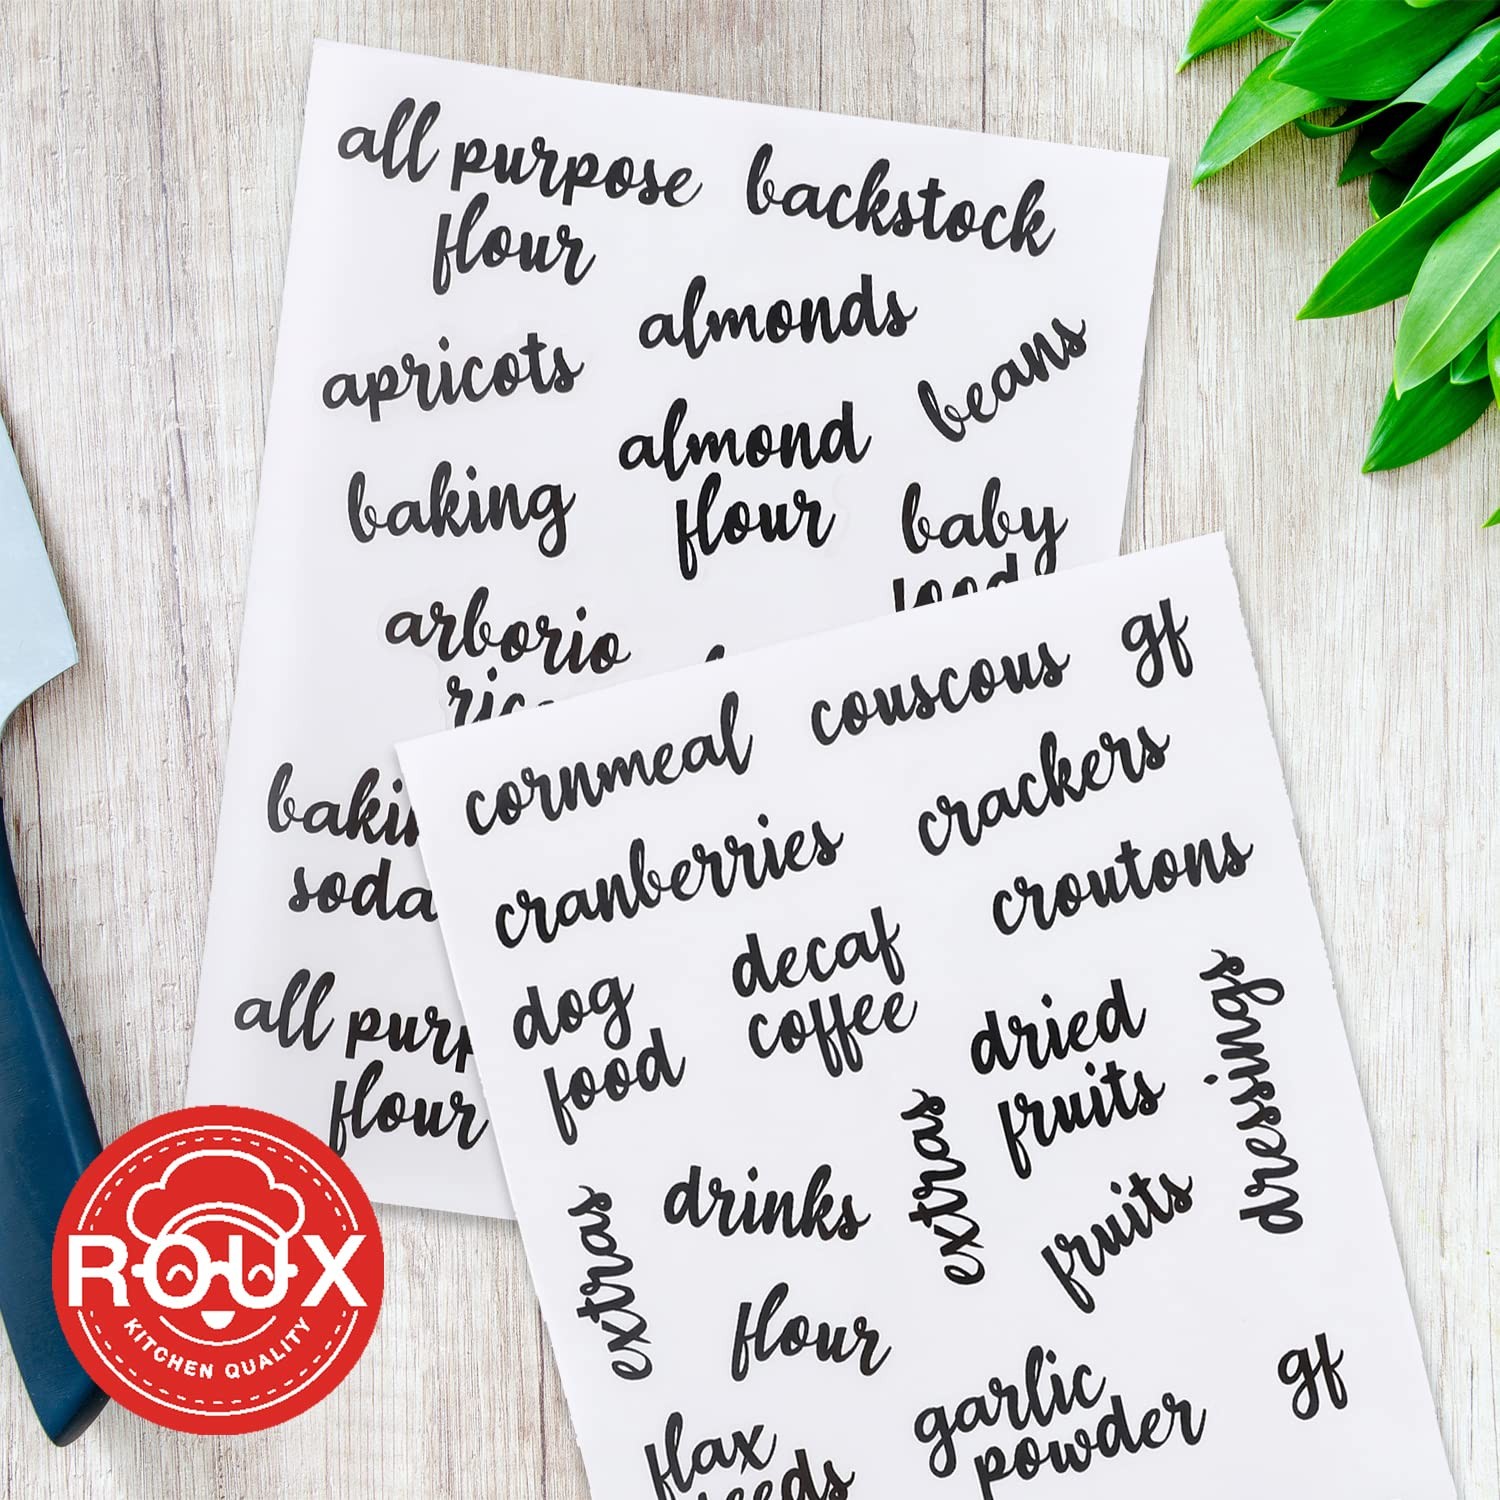 all purpose
flour
backstock
almonds
apricots
beans
almond
flour
baking
baby
food
arborio
rice
soda
all purp
flour
cornmeal
couscous
gf
crackers
cranberries
croutons
decaf
coffee
dog
food
dried
fruits
dressings
extras
drinks
extras
fruits
flour
gf
garlic
powder
flax
ROUX
KITCHEN QUALITY